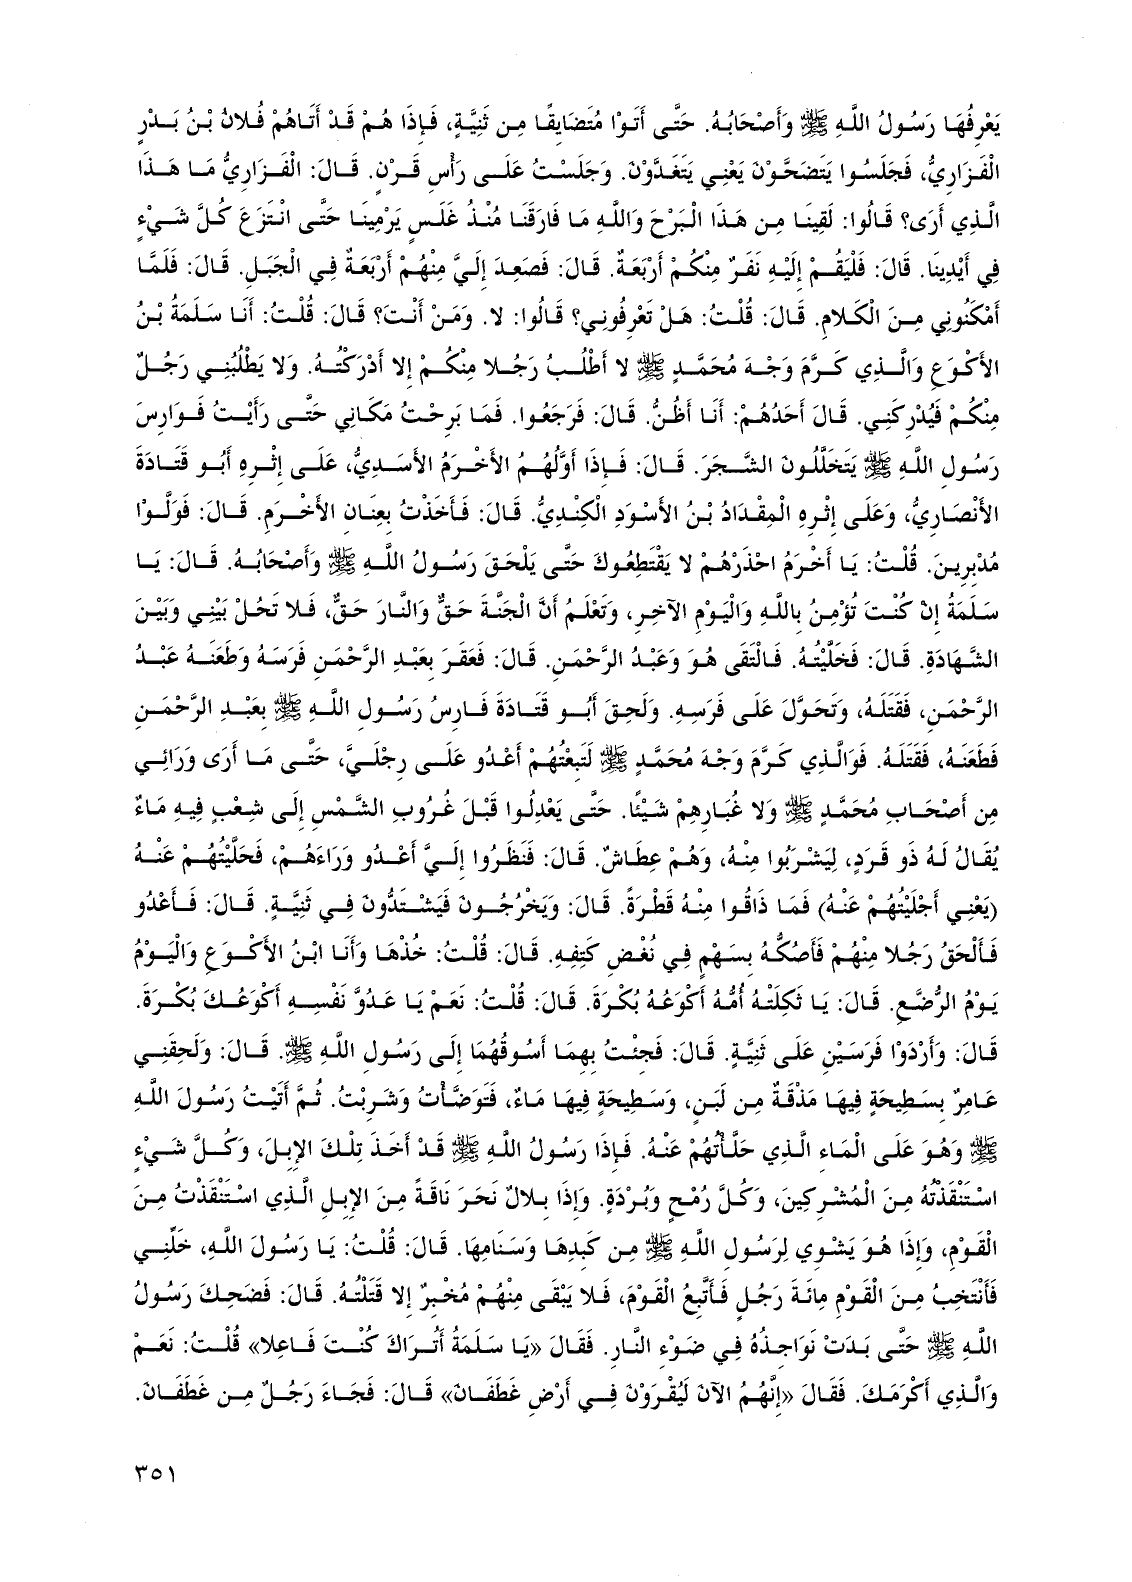 يَعْرِفُهَا رَسُولُ اللَّهِ ﷺ وَأَصْحَابُهُ. حَتَّى أَتَوْا مُتَضَايِقًا مِن ثَنِيَّةٍ، فَإِذَا هُمْ قَدْ أَتَاهُمْ فُلانُ بْنُ بَدْرٍ
الْفَزَارِيُّ، فَجَلَسُوا يَتَضَحَّوْنَ يَعْنِي يَتَغَدَّوْنَ. وَجَلَسْتُ عَلَى رَأْسِ قَرْنٍ. قَالَ: الْفَزَارِيُّ مَا هَذَا
الَّذِي أَرَى؟ قَالُوا: لَقِينَا مِن هَذَا الْبَرْحَ وَاللَّهِ مَا فَارَقَنَا مُنْذُ غَلَسٍ يَرْمِينَا حَتَّى انْتَزَعَ كُلَّ شَيْءٍ
فِي أَيْدِينَا. قَالَ: فَلْيَقُمْ إِلَيْهِ نَفَرٌ مِنْكُمْ أَرْبَعَةٌ. قَالَ: فَصَعِدَ إِلَيَّ مِنْهُمْ أَرْبَعَةٌ فِي الْجَبَلِ. قَالَ: فَلَمَّا
أَمْكَنُونِي مِنَ الْكَلامِ. قَالَ: قُلْتُ: هَلْ تَعْرِفُونِي؟ قَالُوا: لا. وَمَنْ أَنْتَ؟ قَالَ: قُلْتُ: أَنَا سَلَمَةُ بْنُ
الأَكْوَعِ وَالَّذِي كَرَّمَ وَجْهَ مُحَمَّدٍ ﷺ لا أَطْلُبُ رَجُلا مِنْكُمْ إِلا أَدْرَكْتُهُ. وَلا يَطْلُبُنِي رَجُلٌ
مِنْكُمْ فَيُدْرِكَنِي. قَالَ أَحَدُهُمْ: أَنَا أَظُنُّ. قَالَ: فَرَجَعُوا. فَمَا بَرِحْتُ مَكَانِي حَتَّى رَأَيْتُ فَوَارِسَ
رَسُولِ اللَّهِ ﷺ يَتَخَلَّلُونَ الشَّجَرَ. قَالَ: فَإِذَا أَوَّلُهُمُ الأَخْرَمُ الأَسَدِيُّ، عَلَى إِثْرِهِ أَبُو قَتَادَةَ
الأَنْصَارِيُّ، وَعَلَى إِثْرِهِ الْمِقْدَادُ بْنُ الأَسْوَدِ الْكِنْدِيُّ. قَالَ: فَأَخَذْتُ بِعِنَانِ الأَخْرَمِ. قَالَ: فَوَلَّوْا
مُدْبِرِينَ. قُلْتُ: يَا أَخْرَمُ احْذَرْهُمْ لا يَقْتَطِعُوكَ حَتَّى يَلْحَقَ رَسُولُ اللَّهِ ﷺ وَأَصْحَابُهُ. قَالَ: يَا
سَلَمَةُ إِنْ كُنْتَ تُؤْمِنُ بِاللَّهِ وَالْيَوْمِ الآخِرِ، وَتَعْلَمُ أَنَّ الْجَنَّةَ حَقٌّ وَالنَّارَ حَقٌّ، فَلا تَحُلْ بَيْنِي وَبَيْنَ
الشَّهَادَةِ. قَالَ: فَخَلَّيْتُهُ. فَالْتَقَى هُوَ وَعَبْدُ الرَّحْمَنِ. قَالَ: فَعَقَرَ بِعَبْدِ الرَّحْمَنِ فَرَسَهُ وَطَعَنَهُ عَبْدُ
الرَّحْمَنِ، فَقَتَلَهُ، وَتَحَوَّلَ عَلَى فَرَسِهِ. وَلَحِقَ أَبُو قَتَادَةَ فَارِسُ رَسُولِ اللَّهِ ﷺ بِعَبْدِ الرَّحْمَنِ
فَطَعَنَهُ، فَقَتَلَهُ. فَوَالَّذِي كَرَّمَ وَجْهَ مُحَمَّدٍ ﷺ لَتَبِعْتُهُمْ أَعْدُو عَلَى رِجْلَيَّ، حَتَّى مَا أَرَى وَرَائِي
مِن أَصْحَابِ مُحَمَّدٍ ﷺ وَلا غُبَارِهِمْ شَيْئًا. حَتَّى يَعْدِلُوا قَبْلَ غُرُوبِ الشَّمْسِ إِلَى شِعْبٍ فِيهِ مَاءٌ
يُقَالُ لَهُ ذُو قَرَدٍ، لِيَشْرَبُوا مِنْهُ، وَهُمْ عِطَاشٌ. قَالَ: فَنَظَرُوا إِلَيَّ أَعْدُو وَرَاءَهُمْ، فَحَلَّيْتُهُمْ عَنْهُ
(يَعْنِي أَجْلَيْتُهُمْ عَنْهُ) فَمَا ذَاقُوا مِنْهُ قَطْرَةً. قَالَ: وَيَخْرُجُونَ فَيَشْتَدُّونَ فِي ثَنِيَّةٍ. قَالَ: فَأَعْدُو
فَأَلْحَقُ رَجُلا مِنْهُمْ فَأَصُكُّهُ بِسَهْمٍ فِي نُغْضِ كَتِفِهِ. قَالَ: قُلْتُ: خُذْهَا وَأَنَا ابْنُ الأَكْوَعِ وَالْيَوْمُ
يَوْمُ الرُّضَّعِ. قَالَ: يَا ثَكِلَتْهُ أُمُّهُ أَكْوَعُهُ بُكْرَةَ. قَالَ: قُلْتُ: نَعَمْ يَا عَدُوَّ نَفْسِهِ أَكْوَعُكَ بُكْرَةَ.
قَالَ: وَأَرْدَوْا فَرَسَيْنِ عَلَى ثَنِيَّةٍ. قَالَ: فَجِئْتُ بِهِمَا أَسُوقُهُمَا إِلَى رَسُولِ اللَّهِ ﷺ. قَالَ: وَلَحِقَنِي
عَامِرٌ بِسَطِيحَةٍ فِيهَا مَذْقَةٌ مِن لَبَنٍ، وَسَطِيحَةٍ فِيهَا مَاءٌ، فَتَوَضَّأْتُ وَشَرِبْتُ. ثُمَّ أَتَيْتُ رَسُولَ اللَّهِ
ﷺ وَهُوَ عَلَى الْمَاءِ الَّذِي حَلَّأْتُهُمْ عَنْهُ. فَإِذَا رَسُولُ اللَّهِ ﷺ قَدْ أَخَذَ تِلْكَ الإِبِلَ، وَكُلَّ شَيْءٍ
اسْتَنْقَذْتُهُ مِنَ الْمُشْرِكِينَ، وَكُلَّ رُمْحٍ وَبُرْدَةٍ. وَإِذَا بِلالٌ نَحَرَ نَاقَةً مِنَ الإِبِلِ الَّذِي اسْتَنْقَذْتُ مِنَ
الْقَوْمِ، وَإِذَا هُوَ يَشْوِي لِرَسُولِ اللَّهِ ﷺ مِن كَبِدِهَا وَسَنَامِهَا. قَالَ: قُلْتُ: يَا رَسُولَ اللَّهِ، خَلِّنِي
فَأَنْتَخِبُ مِنَ الْقَوْمِ مِائَةَ رَجُلٍ فَأَتَّبِعُ الْقَوْمَ، فَلا يَبْقَى مِنْهُمْ مُخْبِرٌ إِلا قَتَلْتُهُ. قَالَ: فَضَحِكَ رَسُولُ
اللَّهِ ﷺ حَتَّى بَدَتْ نَوَاجِذُهُ فِي ضَوْءِ النَّارِ. فَقَالَ «يَا سَلَمَةُ أَتُرَاكَ كُنْتَ فَاعِلا» قُلْتُ: نَعَمْ
وَالَّذِي أَكْرَمَكَ. فَقَالَ «إِنَّهُمُ الآنَ لَيُقْرَوْنَ فِي أَرْضِ غَطَفَانَ» قَالَ: فَجَاءَ رَجُلٌ مِن غَطَفَانَ.
٣٥١